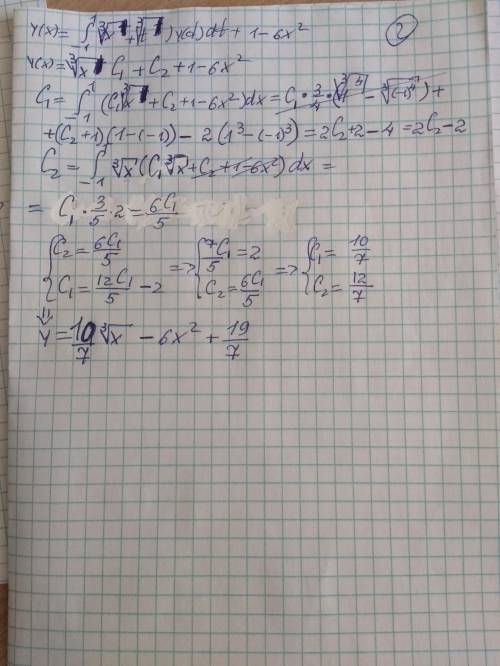 ②
y(x) = ∫₋₁¹ (∛x + ∛t) y(t) dt + 1 - 6x²
y(x) = ∛x C₁ + C₂ + 1 - 6x²
C₁ = ∫₋₁¹ (C₁∛x + C₂ + 1 - 6x²)dx = C₁ * 3/4 * (∛1⁴ - ∛(-1)⁴) +
+ (C₂ + 1)(1 - (-1)) - 2(1³ - (-1)³) = 2C₂ + 2 - 4 = 2C₂ - 2
C₂ = ∫₋₁¹ ∛x (C₁∛x + C₂ + 1 - 6x²) dx =
= C₁ * 3/5 * 2 = 6C₁/5
{ C₂ = 6C₁/5 ; C₁ = 12C₁/5 - 2 => { 7/5 C₁ = 2 ; C₂ = 6C₁/5 => { C₁ = 10/7 ; C₂ = 12/7
⇓
y = 10/7 ∛x - 6x² + 19/7